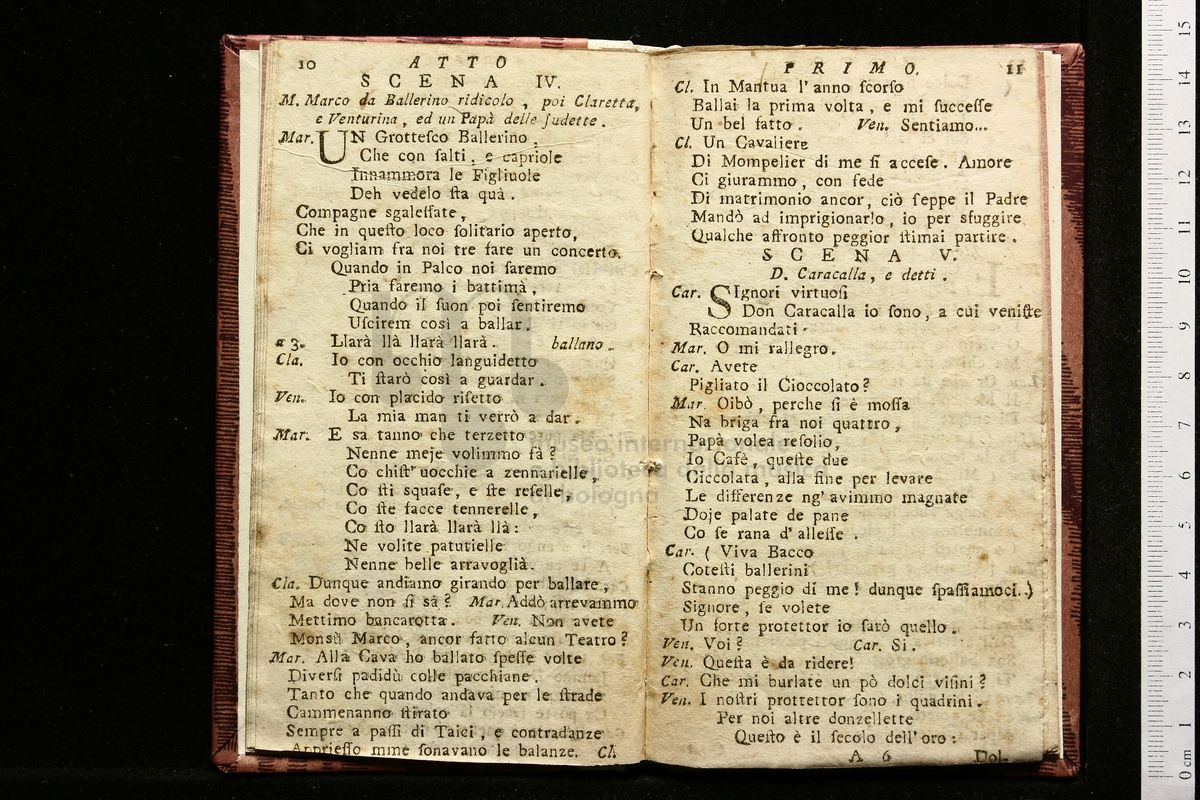 10 ATTO
SCENA IV.
M. Marco da Ballerino ridicolo, poi Claretta,
e Venturina, ed un Papà delle sudette.
Mar. UN Grottesco Ballerino,
Che con salti, e capriole
Innammora le Figliuole
Deh vedelo sta quà.
Compagne sgalessate,
Che in questo loco solitario aperto,
Ci vogliam fra noi tre fare un concerto.
Quando in Palco noi saremo
Pria faremo i battimà,
Quando il suon poi sentiremo
Uscirem così a ballar.
a 3. Llarà llà llarà llarà. ballano.
Cla. Io con occhio languidetto
Ti starò così a guardar.
Ven. Io con placido risetto
La mia man ti verrò a dar.
Mar. E sa tanno che terzetto
Nenne meje volimmo fà?
Co chist' uocchie a zennarielle,
Co sti squase, e ste reselle,
Co ste facce tennerelle,
Co sto llarà llarà llà:
Ne volite patutielle
Nenne belle arravoglià.
Cla. Dunque andiamo girando per ballare,
Ma dove non si sà? Mar. Addò arrevammo
Mettimo bancarotta. Ven. Non avete
Monsù Marco, ancor fatto alcun Teatro?
Mar. Alla Cava ho ballato spesse volte
Diversi padidù colle pacchiane.
Tanto che quando andava per le strade
Cammenanno stirato
Sempre a passi di Taici, e contradanze
Appriesso mme sonavano le balanze. Cl.
PRIMO. 11
Cl. In Mantua l'anno scorso
Ballai la prima volta, e mi successe
Un bel fatto. Ven. Sentiamo...
Cl. Un Cavaliere
Di Mompelier di me si accese. Amore
Ci giurammo, con fede
Di matrimonio ancor, ciò seppe il Padre
Mandò ad imprigionarlo, io per sfuggire
Qualche affronto peggior stimai partire.
SCENA V.
D. Caracalla, e detti.
Car. SIgnori virtuosi
Don Caracalla io sono, a cui veniste
Raccomandati.
Mar. O mi rallegro.
Car. Avete
Pigliato il Cioccolato?
Mar. Oibò, perche si è mossa
Na briga fra noi quattro,
Papà volea resolio,
Io Cafè, queste due
Ciccolata, alla fine per levare
Le differenze ng' avimmo magnate
Doje palate de pane
Co se rana d'allesse.
Car. (Viva Bacco
Cotesti ballerini
Stanno peggio di me! dunque spassiamoci.)
Signore, se volete
Un forte protettor io sarò quello.
Ven. Voi? Car. Si.
Ven. Questa è da ridere!
Car. Che mi burlate un pò dolci visini?
Ven. I nostri protettor sono i quadrini.
Per noi altre donzellette
Questo è il secolo dell'oro:
A 6 Dol-